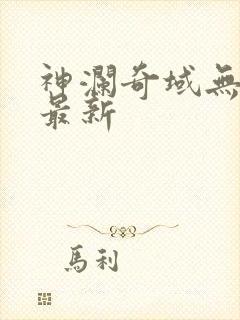 神瀾奇域無
最新
馬利